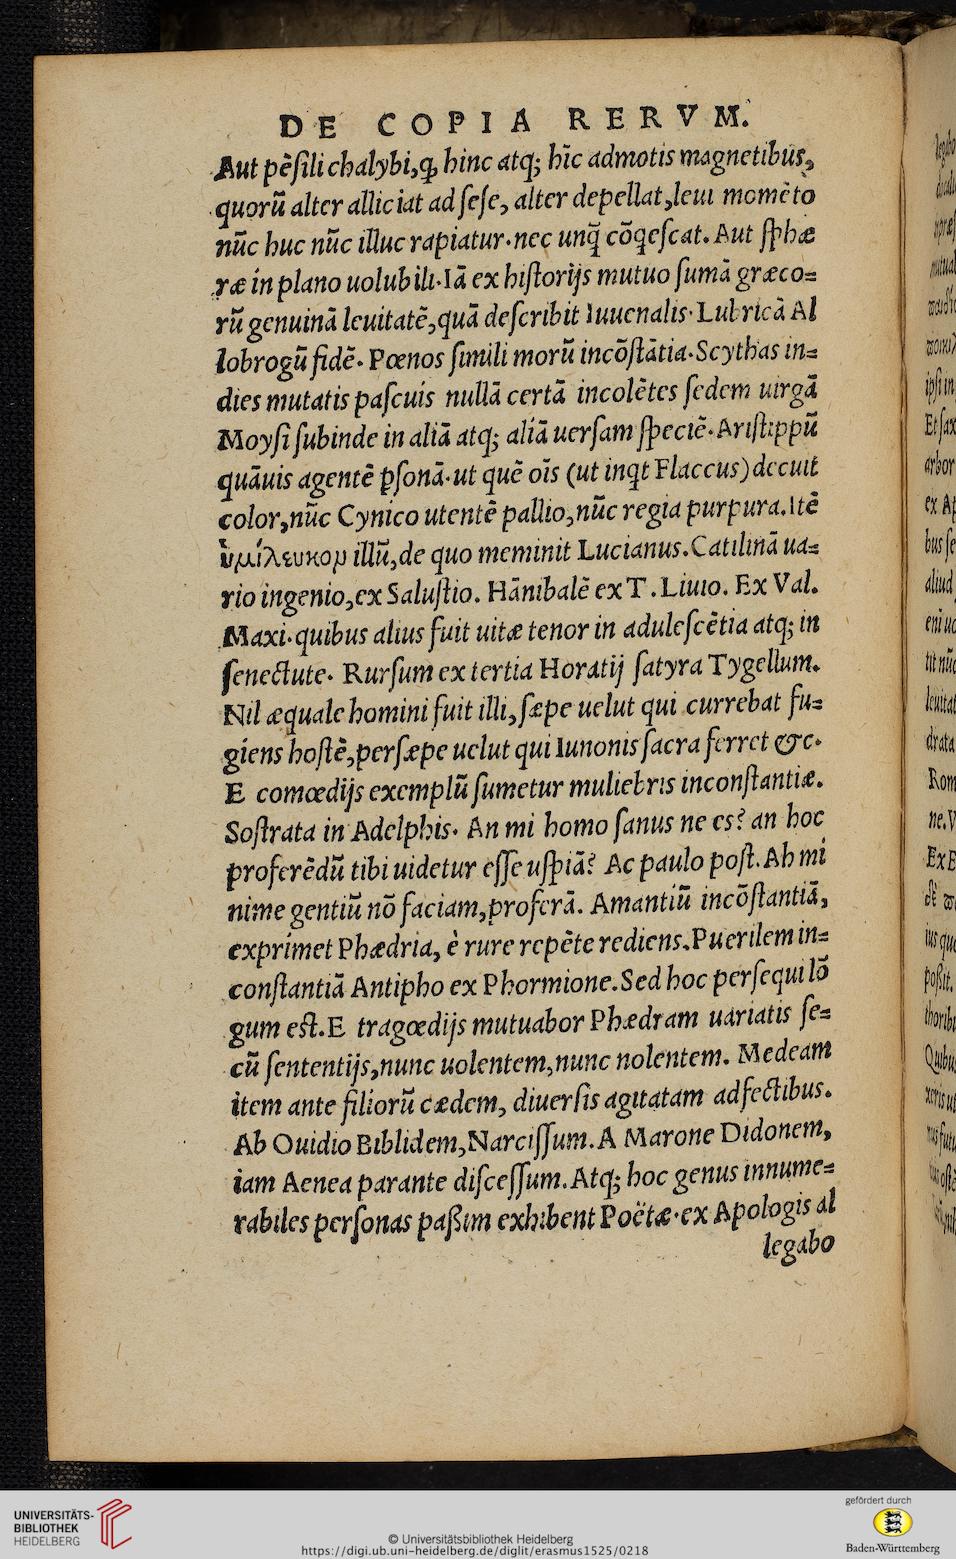 DE COPIA RERVM.
Aut pẽſili chalybi, q̃ hinc atq; hĩc admotis magnetibus,
quorũ alter alliciat ad ſeſe, alter depellat, leui momẽto
nũc huc nũc illuc rapiatur. nec unq̃ cõq̃eſcat. Aut ſphæ
ræ in plano uolubili. Iã ex hiſtorijs mutuo ſumã græco=
rũ genuinã leuitatẽ, quã deſcribit Iuuenalis. Lubricã Al
lobrogũ fidẽ. Pœnos ſimili morũ incõſtãtia. Scythas in=
dies mutatis paſcuis nullã certã incolẽtes ſedem uirgã
Moyſi ſubinde in aliã atq; aliã uerſam ſpeciẽ. Ariſtippũ
quãuis agentẽ ꝑſonã. ut quẽ oĩs (ut inq̃t Flaccus) decuit
color, nũc Cynico utentẽ pallio, nũc regia purpura. Itẽ
ὑμίλευκον illũ, de quo meminit Lucianus. Catilinã ua=
rio ingenio, ex Saluſtio. Hãnibalẽ ex T. Liuio. Ex Val.
Maxi. quibus alius fuit uitæ tenor in aduleſcẽtia atq; in
ſenectute. Rurſum ex tertia Horatij ſatyra Tygellum.
Nil æquale homini fuit illi, ſæpe uelut qui currebat fu=
giens hoſtẽ, perſæpe uelut qui Iunonis ſacra ferret &c.
E comœdijs exemplũ ſumetur muliebris inconſtantiæ.
Soſtrata in Adelphis. An mi homo ſanus ne es? an hoc
proferẽdũ tibi uidetur eſſe uſpiã? Ac paulo poſt. Ah mi
nime gentiũ nõ faciam, proferã. Amantiũ incõſtantiã,
exprimet Phædria, è rure repẽte rediens. Puerilem in=
conſtantiã Antipho ex Phormione. Sed hoc perſequi lõ
gum eſt. E tragœdijs mutuabor Phædram uariatis ſe=
cũ ſententijs, nunc uolentem, nunc nolentem. Medeam
item ante filiorũ cædem, diuerſis agitatam adfectibus.
Ab Ouidio Biblidem, Narciſſum. A Marone Didonem,
iam Aenea parante diſceſſum. Atq; hoc genus innume=
rabiles perſonas paßim exhibent Poëtæ. ex Apologis al
legabo
UNIVERSITÄTS-
BIBLIOTHEK
HEIDELBERG
© Universitätsbibliothek Heidelberg
https://digi.ub.uni-heidelberg.de/diglit/erasmus1525/0218
gefördert durch
Baden-Württemberg